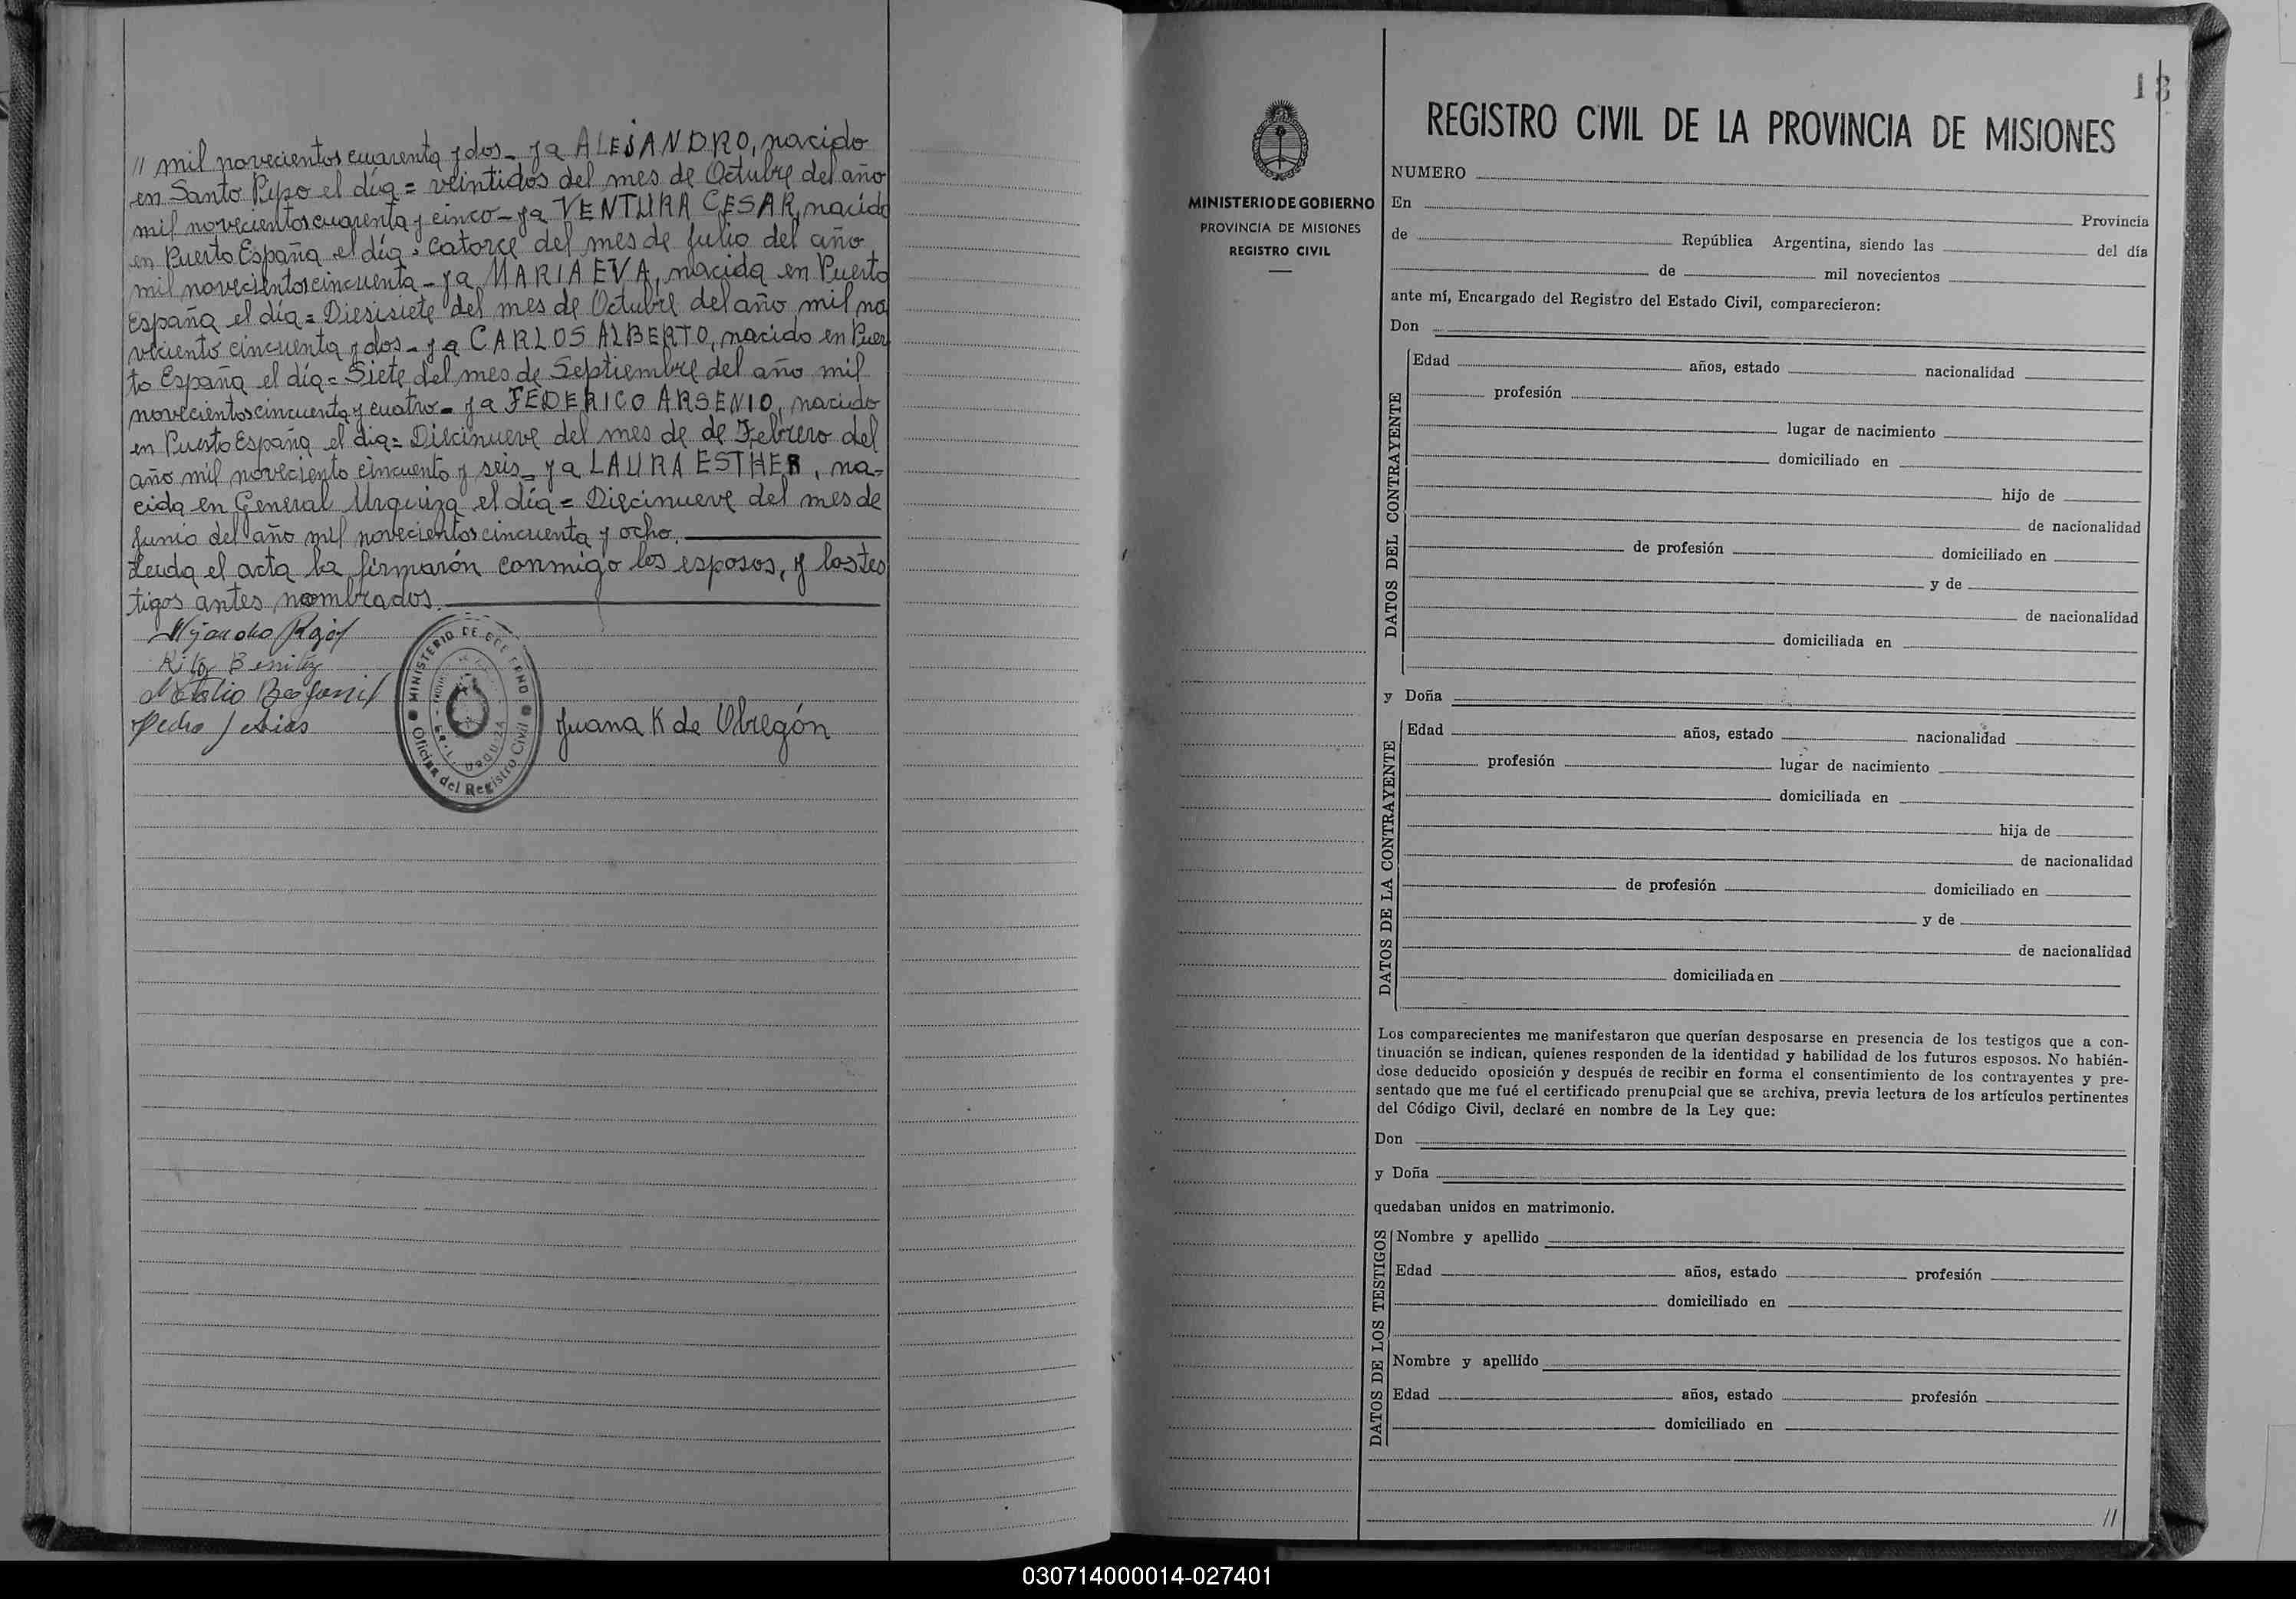 // mil novecientos cuarenta y dos_ y a ALEJANDRO, nacido
en Santo Pipo el día = veintidos del mes de Octubre del año
mil novecientos cuarenta y cinco_ y a VENTURA CESAR, nacido
en Puerto España el día = catorce del mes de Julio del año
mil novecientos cincuenta _ y a MARIA EVA, nacida en Puerto
España el día = Diesisiete del mes de Octubre del año mil no
veciento cincuenta y dos_ y a CARLOS ALBERTO, nacido en Puer
to España el día = Siete del mes de Septiembre del año mil
novecientos cincuenta y cuatro_ y a FEDERICO ARSENIO, nacido
en Puerto España el dia = Diecinueve del mes de de Febrero del
año mil noveciento cincuenta y seis_ y a LAURA ESTHER, na-
cida en General Urquiza el día = Diecinueve del mes de
Junio del año mil novecientos cincuenta y ocho.
Leuda el acta la firmarón conmigo los esposos, y los tes
tigos antes nombrados.
Rita Benitez
Pedro
MINISTERIO DE GOBIERNO
Oficina del Registro Civil
Juana K de Obregón
18
MINISTERIO DE GOBIERNO
PROVINCIA DE MISIONES
REGISTRO CIVIL
REGISTRO CIVIL DE LA PROVINCIA DE MISIONES
NUMERO
En
Provincia
de República Argentina, siendo las del día
de mil novecientos
ante mí, Encargado del Registro del Estado Civil, comparecieron:
Don
DATOS DEL CONTRAYENTE
Edad años, estado nacionalidad
profesión
lugar de nacimiento
domiciliado en
hijo de
de nacionalidad
de profesión domiciliado en
y de
de nacionalidad
domiciliada en
y Doña
DATOS DE LA CONTRAYENTE
Edad años, estado nacionalidad
profesión lugar de nacimiento
domiciliada en
hija de
de nacionalidad
de profesión domiciliado en
y de
de nacionalidad
domiciliada en
Los comparecientes me manifestaron que querían desposarse en presencia de los testigos que a con-
tinuación se indican, quienes responden de la identidad y habilidad de los futuros esposos. No habién-
dose deducido oposición y después de recibir en forma el consentimiento de los contrayentes y pre-
sentado que me fué el certificado prenupcial que se archiva, previa lectura de los artículos pertinentes
del Código Civil, declaré en nombre de la Ley que:
Don
y Doña
quedaban unidos en matrimonio.
DATOS DE LOS TESTIGOS
Nombre y apellido
Edad años, estado profesión
domiciliado en
Nombre y apellido
Edad años, estado profesión
domiciliado en
//
030714000014-027401